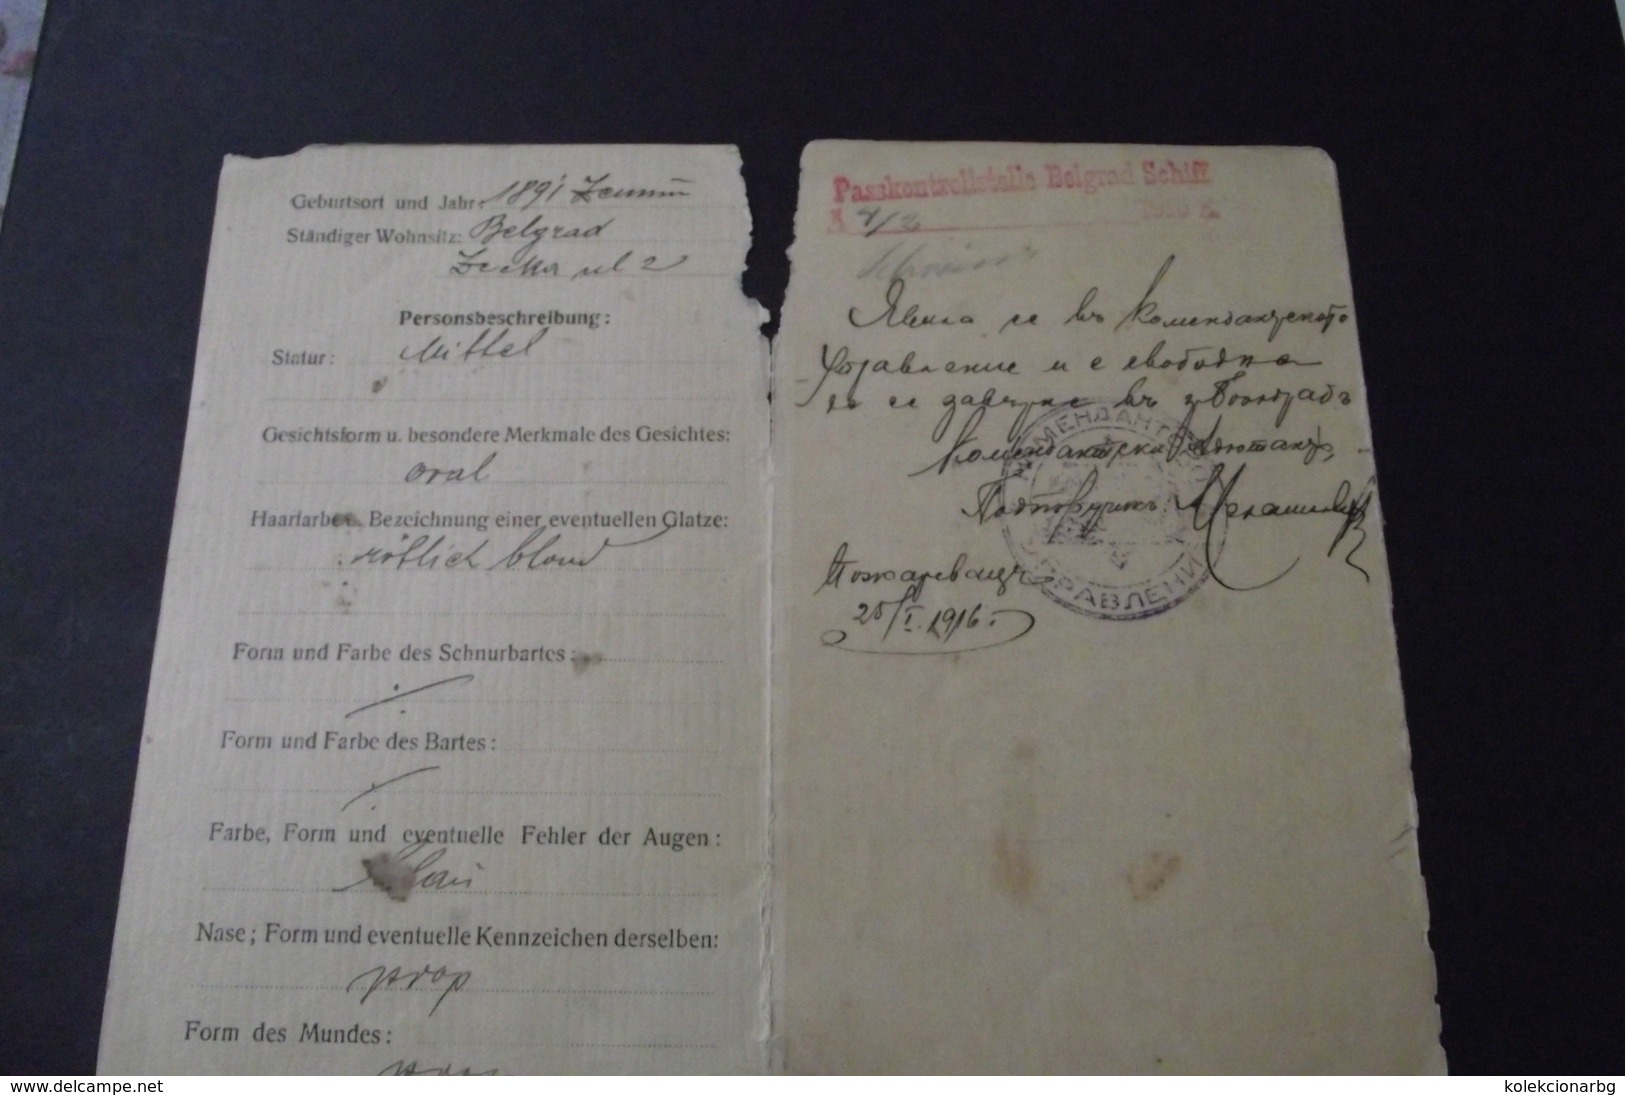 Geburtsort und Jahr: 1891 Zemun
Ständiger Wohnsitz: Belgrad
ul 2
Personsbeschreibung:
Statur: Mittel
Gesichtsform u. besondere Merkmale des Gesichtes:
oval
Haarfarbe Bezeichnung einer eventuellen Glatze:
rötlich blond
Form und Farbe des Schnurbartes:
Form und Farbe des Bartes:
Farbe, Form und eventuelle Fehler der Augen:
Nase; Form und eventuelle Kennzeichen derselben:
prop
Form des Mundes:
prop
Passkontrollstelle Belgrad Schiff
K 4/2
Явила се въ Комендантското
Управление и е свободна
да се завърне въ Бѣлградъ
Комендантски Адютантъ,
Подпоручикъ
Пожаревацъ
25/I.1916.
КОМЕНДАНТСКО
УПРАВЛЕНИЕ
delcampe.net
kolekcionarbg